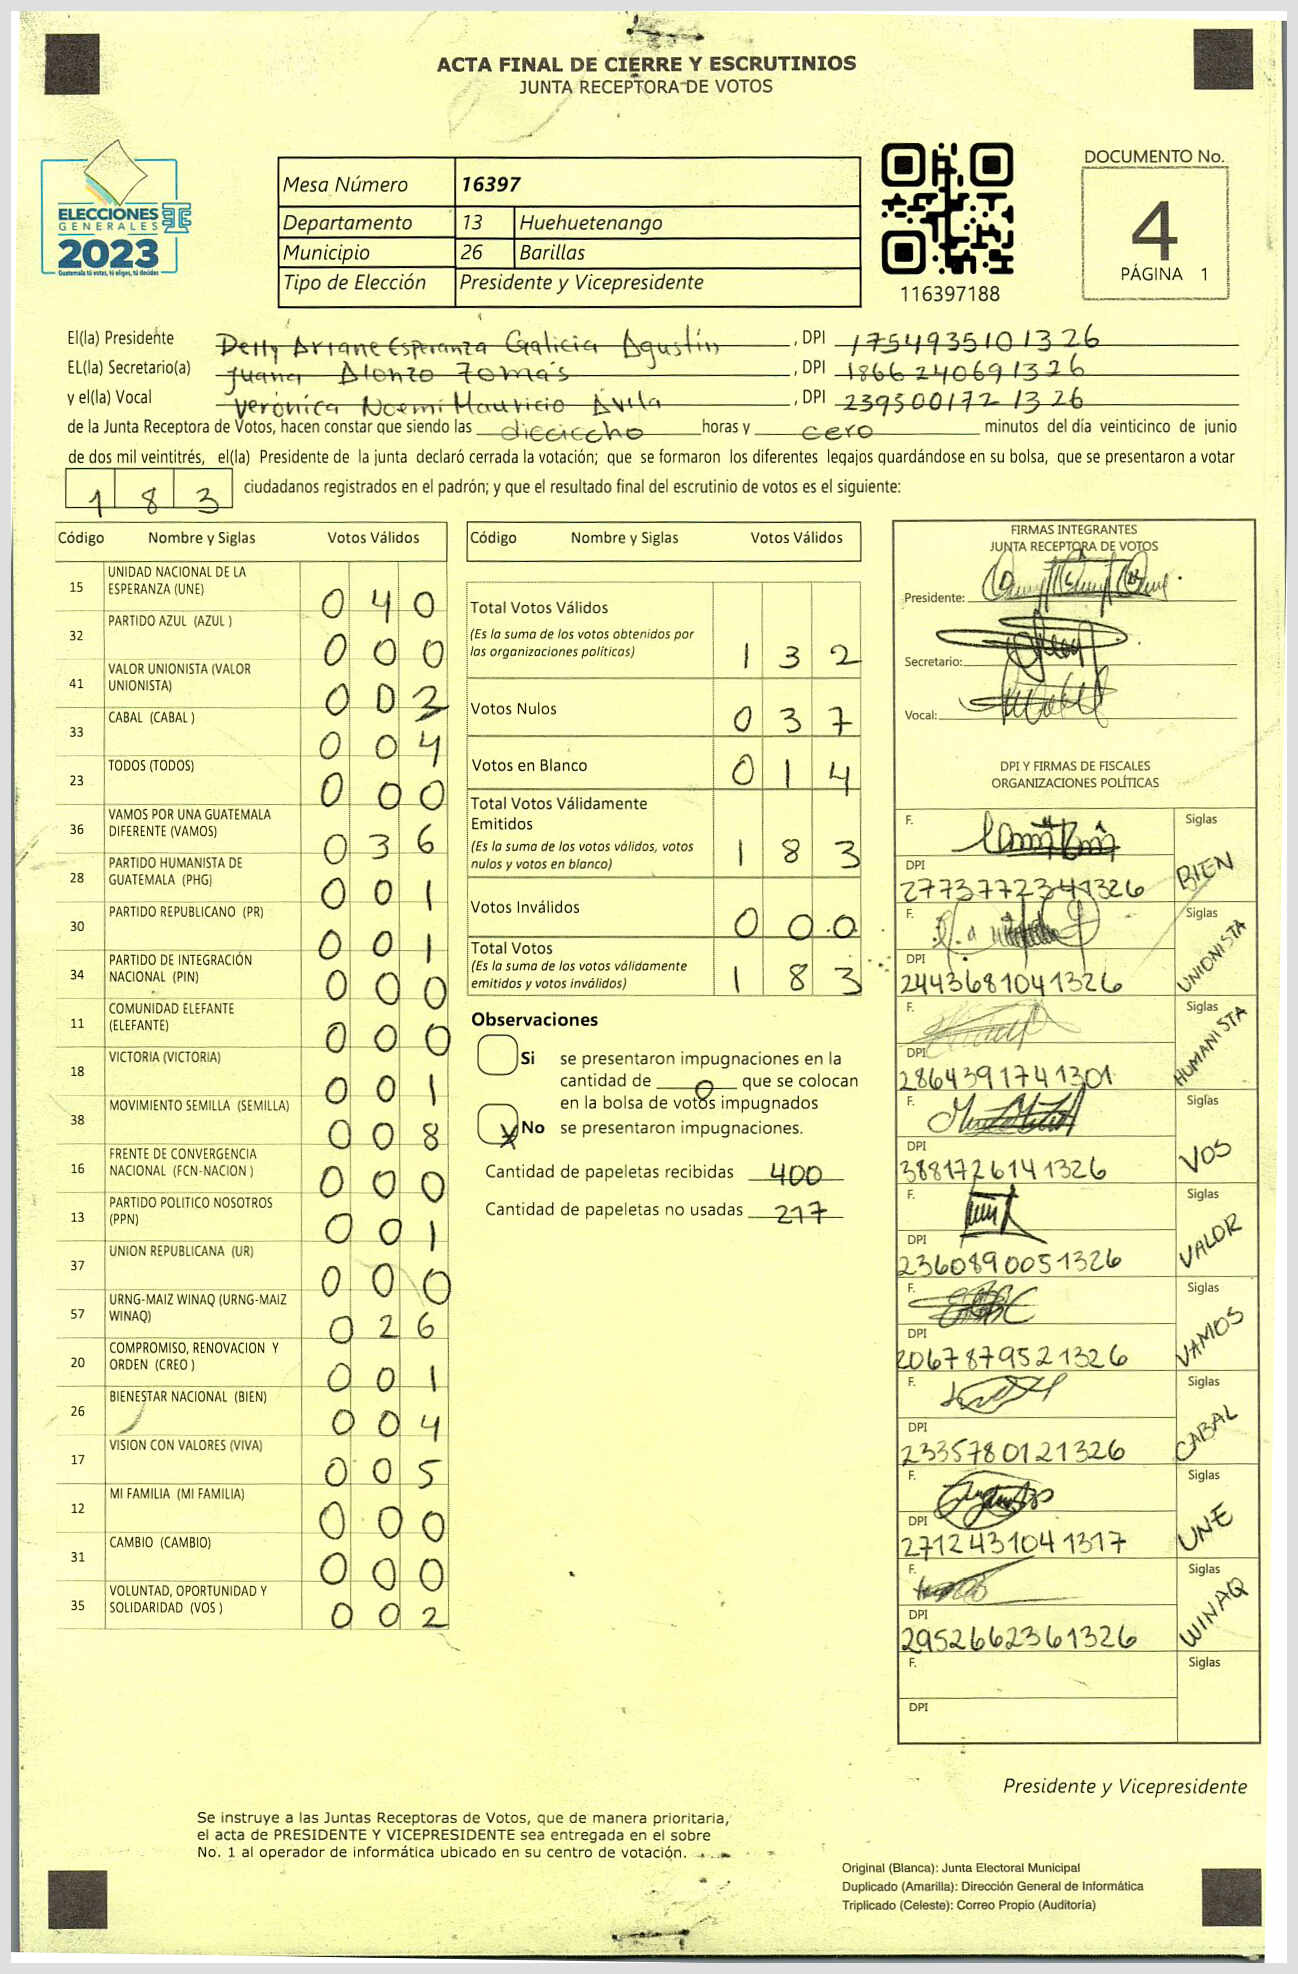 ACTA FINAL DE CIERRE Y ESCRUTINIOS
JUNTA RECEPTORA DE VOTOS
ELECCIONES
GENERALES
2023
Guatemala tú votas, tú eliges, tú decides
Mesa Número 16397
Departamento 13 Huehuetenango
Municipio 26 Barillas
Tipo de Elección Presidente y Vicepresidente
116397188
DOCUMENTO No.
4
PÁGINA 1
El(la) Presidente Delly Ariane Esperanza Galicia Agustín, DPI 1754935101326
EL(la) Secretario(a) Juana Alonzo Tomás, DPI 1866240691326
y el(la) Vocal Verónica Noemi Mauricio Avila, DPI 2395001721326
de la Junta Receptora de Votos, hacen constar que siendo las dieciocho horas y cero minutos del día veinticinco de junio
de dos mil veintitrés, el(la) Presidente de la junta declaró cerrada la votación; que se formaron los diferentes legajos guardándose en su bolsa, que se presentaron a votar
183 ciudadanos registrados en el padrón; y que el resultado final del escrutinio de votos es el siguiente:
Código Nombre y Siglas Votos Válidos
15 UNIDAD NACIONAL DE LA
ESPERANZA (UNE) 0 4 0
32 PARTIDO AZUL (AZUL ) 0 0 0
41 VALOR UNIONISTA (VALOR
UNIONISTA) 0 0 2
33 CABAL (CABAL ) 0 0 4
23 TODOS (TODOS) 0 0 0
36 VAMOS POR UNA GUATEMALA
DIFERENTE (VAMOS) 0 3 6
28 PARTIDO HUMANISTA DE
GUATEMALA (PHG) 0 0 1
30 PARTIDO REPUBLICANO (PR) 0 0 1
34 PARTIDO DE INTEGRACIÓN
NACIONAL (PIN) 0 0 0
11 COMUNIDAD ELEFANTE
(ELEFANTE) 0 0 0
18 VICTORIA (VICTORIA) 0 0 1
38 MOVIMIENTO SEMILLA (SEMILLA) 0 0 8
16 FRENTE DE CONVERGENCIA
NACIONAL (FCN-NACION ) 0 0 0
13 PARTIDO POLITICO NOSOTROS
(PPN) 0 0 1
37 UNION REPUBLICANA (UR) 0 0 0
57 URNG-MAIZ WINAQ (URNG-MAIZ
WINAQ) 0 2 6
20 COMPROMISO, RENOVACION Y
ORDEN (CREO ) 0 0 1
26 BIENESTAR NACIONAL (BIEN) 0 0 4
17 VISION CON VALORES (VIVA) 0 0 5
12 MI FAMILIA (MI FAMILIA) 0 0 0
31 CAMBIO (CAMBIO) 0 0 0
35 VOLUNTAD, OPORTUNIDAD Y
SOLIDARIDAD (VOS ) 0 0 2
Código Nombre y Siglas Votos Válidos
Total Votos Válidos
(Es la suma de los votos obtenidos por
las organizaciones políticas) 1 3 2
Votos Nulos 0 3 7
Votos en Blanco 0 1 4
Total Votos Válidamente
Emitidos
(Es la suma de los votos válidos, votos
nulos y votos en blanco) 1 8 3
Votos Inválidos 0 0 0
Total Votos
(Es la suma de los votos válidamente
emitidos y votos inválidos) 1 8 3
Observaciones
Si se presentaron impugnaciones en la
cantidad de 0 que se colocan
en la bolsa de votos impugnados
X No se presentaron impugnaciones.
Cantidad de papeletas recibidas 400
Cantidad de papeletas no usadas 217
FIRMAS INTEGRANTES
JUNTA RECEPTORA DE VOTOS
Presidente:
Secretario:
Vocal:
DPI Y FIRMAS DE FISCALES
ORGANIZACIONES POLÍTICAS
F. Siglas
DPI 2773772341326 BIEN
F. Siglas
DPI 2443681041326 UNIONISTA
F. Siglas
DPI 2864391741301 HUMANISTA
F. Siglas
DPI 3881726141326 VOS
F. Siglas
DPI 2360890051326 VALOR
F. Siglas
DPI 2067879521326 VAMOS
F. Siglas
DPI 2335780121326 CABAL
F. Siglas
DPI 2712431041317 UNE
F. Siglas
DPI 2952662361326 WINAQ
F. Siglas
DPI
Presidente y Vicepresidente
Se instruye a las Juntas Receptoras de Votos, que de manera prioritaria,
el acta de PRESIDENTE Y VICEPRESIDENTE sea entregada en el sobre
No. 1 al operador de informática ubicado en su centro de votación.
Original (Blanca): Junta Electoral Municipal
Duplicado (Amarilla): Dirección General de Informática
Triplicado (Celeste): Correo Propio (Auditoría)